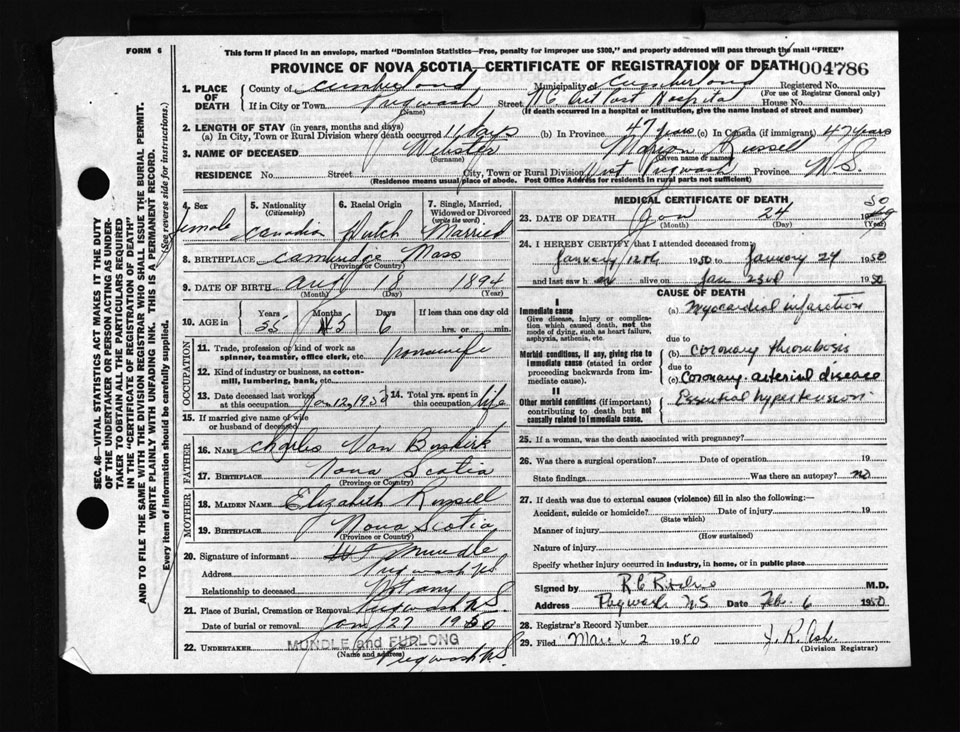 FORM 6
This form if placed in an envelope, marked "Dominion Statistics—Free, penalty for improper use $300," and properly addressed will pass through the mail "FREE"
PROVINCE OF NOVA SCOTIA—CERTIFICATE OF REGISTRATION OF DEATH 004786
SEC. 46-VITAL STATISTICS ACT MAKES IT THE DUTY
OF THE UNDERTAKER OR PERSON ACTING AS UNDER-
TAKER TO OBTAIN ALL THE PARTICULARS REQUIRED
IN THE "CERTIFICATE OF REGISTRATION OF DEATH"
AND TO FILE THE SAME WITH THE DIVISION REGISTRAR WHO SHALL ISSUE THE BURIAL PERMIT.
WRITE PLAINLY WITH UNFADING INK. THIS IS A PERMANENT RECORD.
Every item of information should be carefully supplied. (See reverse side for instructions.)
1. PLACE OF DEATH
County of Cumberland Municipality of Cumberland Registered No.
(For use of Registrar General only)
If in City or Town Pugwash Street Hospital House No.
(Name) (If death occurred in a hospital or institution, give the name instead of street and number)
2. LENGTH OF STAY (in years, months and days)
(a) In City, Town or Rural Division where death occurred 11 days (b) In Province 47 years (c) In Canada (if immigrant) 47 years
3. NAME OF DECEASED Webster Marion Russell
(Surname) (Given name or names)
RESIDENCE No. Street City, Town or Rural Division West Pugwash Province N.S.
(Residence means usual place of abode. Post Office Address for residents in rural parts not sufficient)
4. Sex female
5. Nationality (Citizenship) Canadian
6. Racial Origin Dutch
7. Single, Married, Widowed or Divorced (write the word) Married
8. BIRTHPLACE Cambridge Mass
(Province or Country)
9. DATE OF BIRTH Aug 18 1894
(Month) (Day) (Year)
10. AGE in Years 55 Months 5 Days 6 If less than one day old
hrs. or min.
OCCUPATION
11. Trade, profession or kind of work as spinner, teamster, office clerk, etc. housewife
12. Kind of industry or business, as cotton-mill, lumbering, bank, etc.
13. Date deceased last worked at this occupation Jan 12, 1950 14. Total yrs. spent in this occupation life
15. If married give name of wife or husband of deceased
FATHER
16. NAME Charles Van Buskirk
17. BIRTHPLACE Nova Scotia
(Province or Country)
MOTHER
18. MAIDEN NAME Elizabeth Russell
19. BIRTHPLACE Nova Scotia
(Province or Country)
20. Signature of informant Mundle
Address Pugwash NS
Relationship to deceased Not any
21. Place of Burial, Cremation or Removal Pugwash N.S.
Date of burial or removal Jan 27 1950
22. UNDERTAKER MUNDLE and FURLONG
(Name and address) Pugwash N.S.
MEDICAL CERTIFICATE OF DEATH
23. DATE OF DEATH Jan 24 1950
(Month) (Day) (Year)
24. I HEREBY CERTIFY that I attended deceased from
January 12th 1950 to January 24 1950
and last saw h er alive on Jan 23rd 1950
CAUSE OF DEATH
I
Immediate cause
Give disease, injury or complication which caused death, not the mode of dying, such as heart failure, asphyxia, asthenia, etc.
(a) Myocardial infarction
due to
Morbid conditions, if any, giving rise to immediate cause (stated in order proceeding backwards from immediate cause).
(b) Coronary thrombosis
due to
(c) Coronary arterial disease
II
Other morbid conditions (if important) contributing to death but not causally related to immediate cause.
Essential hypertension
25. If a woman, was the death associated with pregnancy?
26. Was there a surgical operation? Date of operation 19
State findings Was there an autopsy? no
27. If death was due to external causes (violence) fill in also the following:—
Accident, suicide or homicide? Date of injury 19
(State which)
Manner of injury
(How sustained)
Nature of injury
Specify whether injury occurred in industry, in home, or in public place
Signed by M.D.
Address Pugwash N.S Date Feb. 6 1950
28. Registrar's Record Number
29. Filed March 2 1950 J. R. Ash.
(Division Registrar)